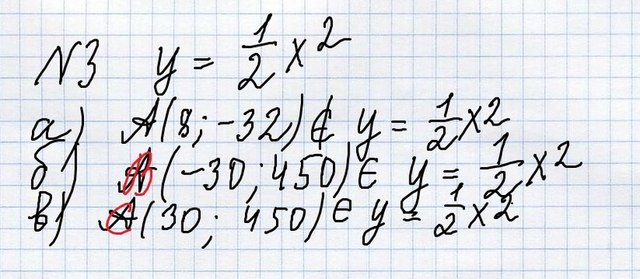 №3 y = 1/2 x²
а) A(8; -32) ∉ y = 1/2 x²
б) A(-30; 450) ∈ y = 1/2 x²
в) A(30; 450) ∈ y = 1/2 x²